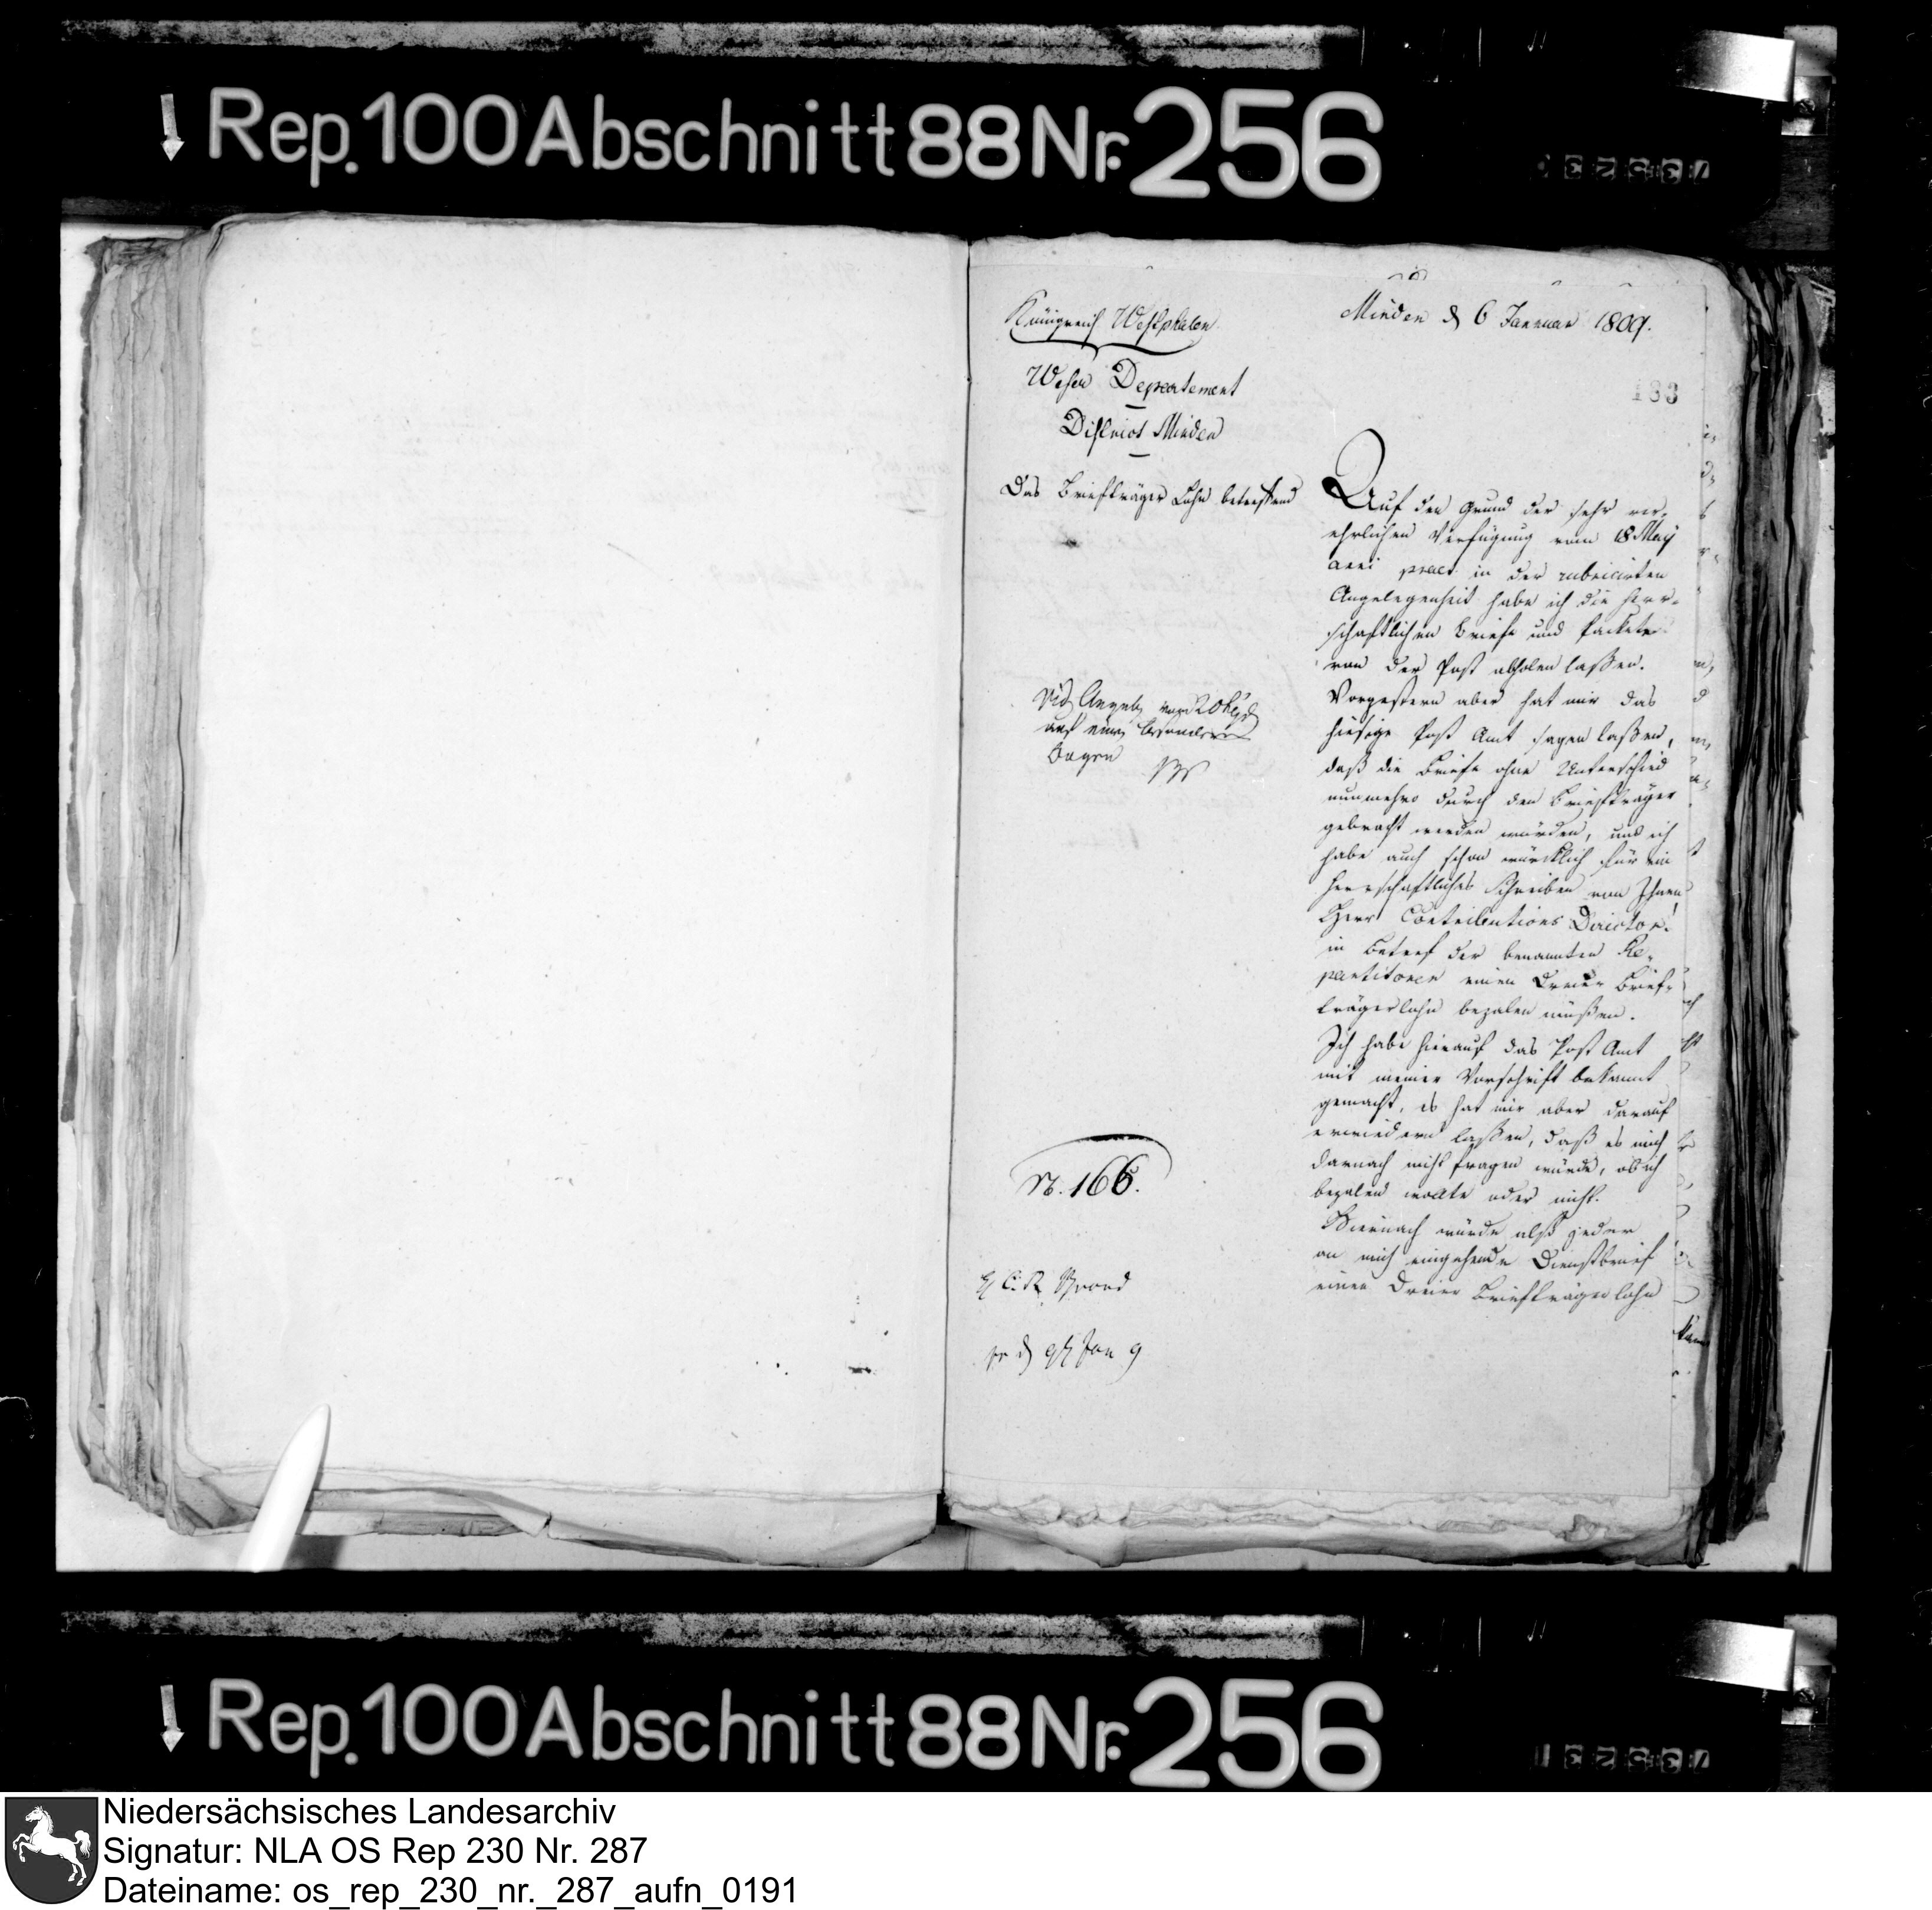 Rep. 100 Abschnitt 88 Nr. 256
Königreich Westphalen
Weser Departement
District Minden
Das Briefträger Lohn betreffend
Minden d 6 Januar 1809.
183
Auf den Grund der sehr ver-
ehrlichen Verfügung vom 18 May
anni praet. in der rubricirten
Angelegenheit habe ich die herr-
schaftlichen Briefe und Packete
von der Post abholen laßen.
Vorgestern aber hat mir das
hiesige Post Amt sagen laßen,
daß die Briefe ohne Unterschied
nunmehro durch den Briefträger
gebracht werden würden, und ich
habe auch schon würklich für ein
herrschaftliches Schreiben von Ihnen
Herr Contributions Director!
in Betref der benannten Re-
partitoren einen Dreier Brief-
trägerlohn bezalen müßen.
Ich habe hierauf das Post Amt
mit meiner Vorschrift bekannt
gemacht, es hat mir aber darauf
erwiedern laßen, daß es mich
darnach nicht fragen würde, ob ich
bezalen wollte oder nicht.
Hiernach würde also jeder
an mich eingehende Dienstbrief
einen Dreier Briefträgerlohn
auf einen besonderen
Bogen
N. 166.
pr d 9 Jan 9
Rep. 100 Abschnitt 88 Nr. 256
Niedersächsisches Landesarchiv
Signatur: NLA OS Rep 230 Nr. 287
Dateiname: os_rep_230_nr._287_aufn_0191